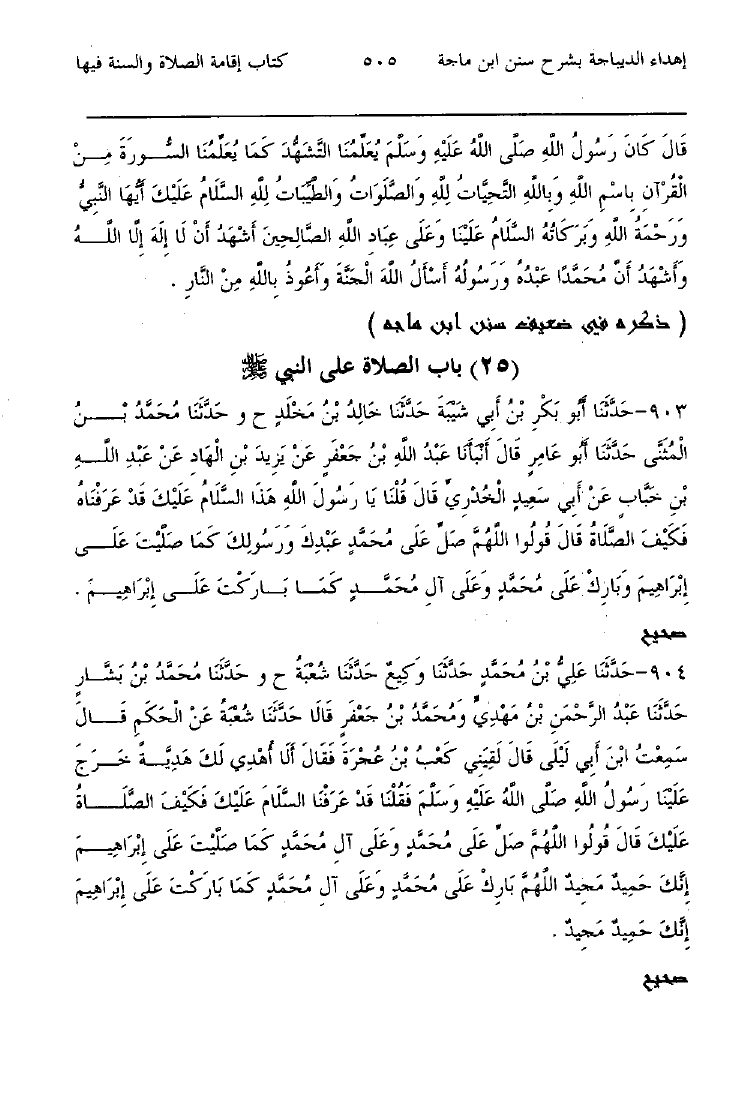 إهداء الديباجة بشرح سنن ابن ماجة ٥٠٥ كتاب إقامة الصلاة والسنة فيها
قَالَ كَانَ رَسُولُ اللهِ صَلَّى اللهُ عَلَيْهِ وَسَلَّمَ يُعَلِّمُنَا التَّشَهُّدَ كَمَا يُعَلِّمُنَا السُّورَةَ مِنْ
الْقُرْآنِ بِاسْمِ اللهِ وَبِاللهِ التَّحِيَّاتُ لِلَّهِ وَالصَّلَوَاتُ وَالطَّيِّبَاتُ لِلَّهِ السَّلَامُ عَلَيْكَ أَيُّهَا النَّبِيُّ
وَرَحْمَةُ اللهِ وَبَرَكَاتُهُ السَّلَامُ عَلَيْنَا وَعَلَى عِبَادِ اللهِ الصَّالِحِينَ أَشْهَدُ أَنْ لَا إِلَهَ إِلَّا اللهُ
وَأَشْهَدُ أَنَّ مُحَمَّدًا عَبْدُهُ وَرَسُولُهُ أَسْأَلُ اللهَ الْجَنَّةَ وَأَعُوذُ بِاللهِ مِنْ النَّارِ .
( ذكره في ضعيف سنن ابن ماجه )
(٢٥) باب الصلاة على النبي ﷺ
٩٠٣-حَدَّثَنَا أَبُو بَكْرِ بْنُ أَبِي شَيْبَةَ حَدَّثَنَا خَالِدُ بْنُ مَخْلَدٍ ح و حَدَّثَنَا مُحَمَّدُ بْنُ
الْمُثَنَّى حَدَّثَنَا أَبُو عَامِرٍ قَالَ أَنْبَأَنَا عَبْدُ اللهِ بْنُ جَعْفَرٍ عَنْ يَزِيدَ بْنِ الْهَادِ عَنْ عَبْدِ اللهِ
بْنِ خَبَّابٍ عَنْ أَبِي سَعِيدٍ الْخُدْرِيِّ قَالَ قُلْنَا يَا رَسُولَ اللهِ هَذَا السَّلَامُ عَلَيْكَ قَدْ عَرَفْنَاهُ
فَكَيْفَ الصَّلَاةُ قَالَ قُولُوا اللَّهُمَّ صَلِّ عَلَى مُحَمَّدٍ عَبْدِكَ وَرَسُولِكَ كَمَا صَلَّيْتَ عَلَى
إِبْرَاهِيمَ وَبَارِكْ عَلَى مُحَمَّدٍ وَعَلَى آلِ مُحَمَّدٍ كَمَا بَارَكْتَ عَلَى إِبْرَاهِيمَ .
صحيح
٩٠٤-حَدَّثَنَا عَلِيُّ بْنُ مُحَمَّدٍ حَدَّثَنَا وَكِيعٌ حَدَّثَنَا شُعْبَةُ ح و حَدَّثَنَا مُحَمَّدُ بْنُ بَشَّارٍ
حَدَّثَنَا عَبْدُ الرَّحْمَنِ بْنُ مَهْدِيٍّ وَمُحَمَّدُ بْنُ جَعْفَرٍ قَالَا حَدَّثَنَا شُعْبَةُ عَنْ الْحَكَمِ قَالَ
سَمِعْتُ ابْنَ أَبِي لَيْلَى قَالَ لَقِيَنِي كَعْبُ بْنُ عُجْرَةَ فَقَالَ أَلَا أُهْدِي لَكَ هَدِيَّةً خَرَجَ
عَلَيْنَا رَسُولُ اللهِ صَلَّى اللهُ عَلَيْهِ وَسَلَّمَ فَقُلْنَا قَدْ عَرَفْنَا السَّلَامَ عَلَيْكَ فَكَيْفَ الصَّلَاةُ
عَلَيْكَ قَالَ قُولُوا اللَّهُمَّ صَلِّ عَلَى مُحَمَّدٍ وَعَلَى آلِ مُحَمَّدٍ كَمَا صَلَّيْتَ عَلَى إِبْرَاهِيمَ
إِنَّكَ حَمِيدٌ مَجِيدٌ اللَّهُمَّ بَارِكْ عَلَى مُحَمَّدٍ وَعَلَى آلِ مُحَمَّدٍ كَمَا بَارَكْتَ عَلَى إِبْرَاهِيمَ
إِنَّكَ حَمِيدٌ مَجِيدٌ .
صحيح